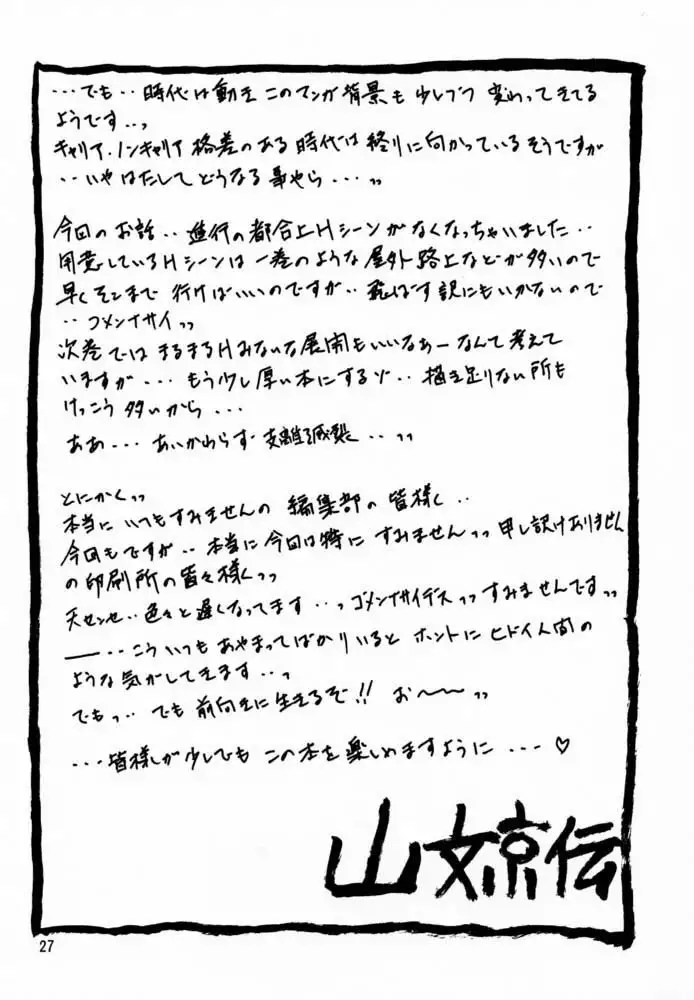 ...でも..時代は動き このマンガ背景も 少しづつ 変わってきてる
ようです..っ
キャリア.ノンキャリア 格差のある 時代は 終りに向かっているそうですが
..いや はたして どうなる 事やら...〃
今回の お話.. 進行の都合上Hシーンが なくなっちゃいました..
用意しているHシーンは 一巻のような 屋外路上などが多いので
早くそこまで 行けばいいのですが.. 飛ばす訳にもいかないので
..ゴメンナサイ〃
次巻では まるまるHみたいな展開もいいなぁーなんて考えて
いますが... もう少し厚い本にするゾ.. 描き足りない所も
けっこう 多いから...
ああ... あいかわらず 支離滅裂..〃
とにかく〃
本当に いつもすみませんの 編集部の 皆様く..
今回もですが.. 本当に 今回は特に すみません〃 申し訳けありません
の印刷所の皆々様く〃
天センセ.. 色々と遅くなってます..っゴメンナサイデス〃すみませんです〃
――..こう いつも あやまってばかりいると ホントに ヒドイ人間の
ような 気がしてきます..っ
でもっ.. でも 前向きに生きるぞ!! お〜〜〃
...皆様しが少しでも この本を楽しめますように...♡
山文京伝
27